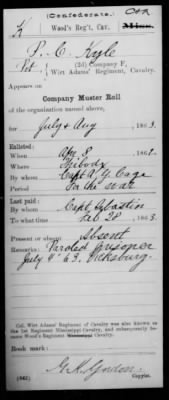 (Confederate.)
K Wood's Reg't, Cav. Miss.
P. C. Kyle
Pvt, (2d) Company F,
Wirt Adams' Regiment, Cavalry.
Appears on
Company Muster Roll
of the organization named above,
for July & Aug, 1863.
Enlisted:
When Apr 8, 186
Where
By whom Capt A. Y. Gage
Period For the war
Last paid:
By whom Capt
To what time Feb 28, 1863.
Present or absent Absent
Remarks: Paroled prisoner
July 4" 63. Vicksburg.
Col. Wirt Adams' Regiment of Cavalry was also known as
the 1st Regiment Mississippi Cavalry, and subsequently be-
came Wood's Regiment Mississippi Cavalry.
Book mark:
Gordon
(642) Copyist.